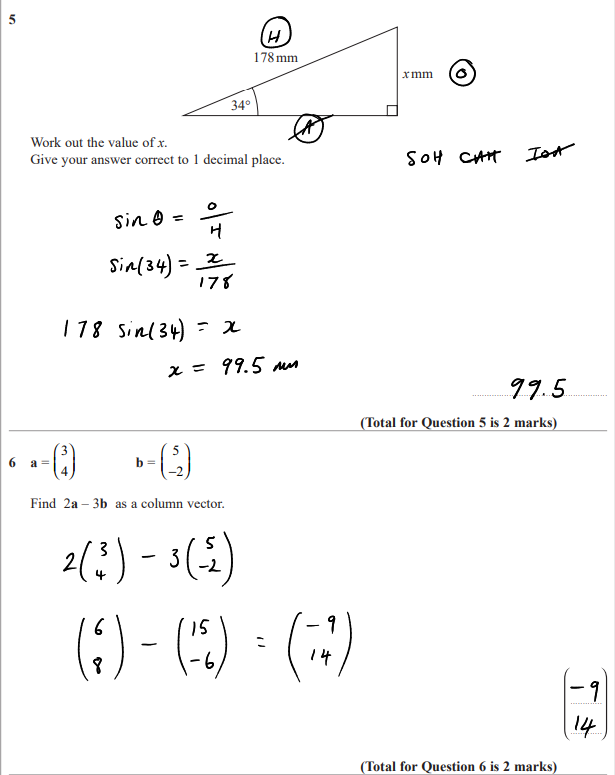 5
H
178 mm
x mm
O
34°
A
Work out the value of x.
Give your answer correct to 1 decimal place.
SOH CAH TOA
sin θ = O/H
sin(34) = x/178
178 sin(34) = x
x = 99.5 mm
99.5
(Total for Question 5 is 2 marks)
6 a = (3 4) b = (5 −2)
Find 2a – 3b as a column vector.
2(3 4) − 3(5 −2)
(6 8) − (15 −6) = (−9 14)
(−9 14)
(Total for Question 6 is 2 marks)